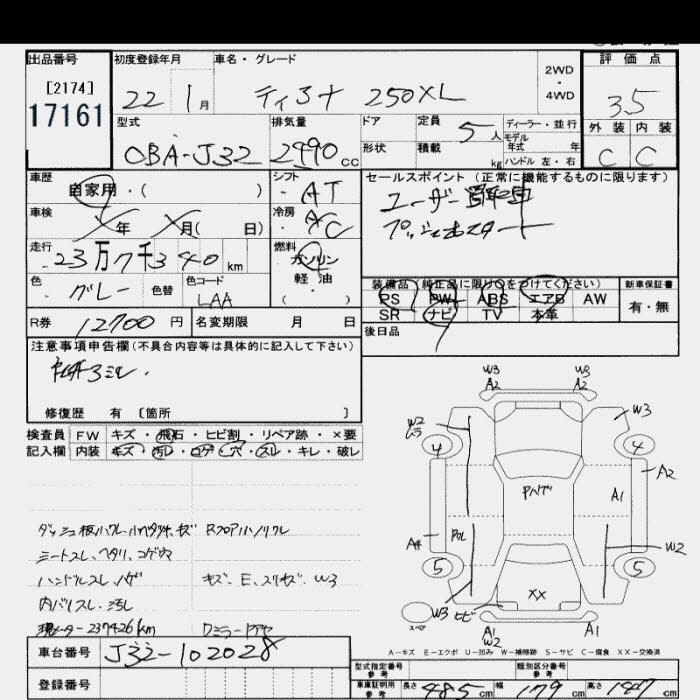 出品番号
[2174]
17161
初度登録年月
22 1月
車名・グレード
ティアナ 250XL
2WD
・
4WD
評価点
3.5
外装 内装
C C
型式
CBA-J32
排気量
2490cc
ドア
形状
定員
5人
積載
kg
ディーラー・並行
モデル
年式 年
ハンドル 左・右
車歴
自家用・( )
シフト
AT
車検
年 月( 日)
冷房
AC
走行
23万7千340km
燃料
ガソリン
軽・油
( )
色
グレー
色替
色コード
LAA
R券 12700円
名変期限 月 日
セールスポイント(正常に機能するものに限ります)
ユーザー買取車
プッシュスタート
装備品(純正品に限り○をつけてください)
PS PW ABS エアB AW
SR ナビ TV 本革
新車保証書
有・無
後日品
注意事項申告欄(不具合内容等は具体的に記入して下さい)
修復歴 有 [箇所 ]
検査員
記入欄
FW キズ・飛石・ヒビ割・リペア跡・×要
内装 キズ・汚レ・コゲ・穴・スレ・キレ・破レ
シートスレ、ヘタリ、コゲ穴
ハンドルスレ、ハゲ
キズ、E、スリキズ、W3
内バリスレ、汚レ
現メーター 237426km
車台番号 J32-102028
登録番号
W3
A2
W3
A2
W2
W3
4
4
A2
Pハゲ
A1
POL
A4
W2
5
5
XX
W3
ヒビ
スペア
A1
W2
A1
A-キズ E-エクボ U-凹み W-補修跡 S-サビ C-腐食 XX-交換済
型式指定番号
参考
類別区分番号
参考
車庫証明用
参考
長さ 485cm 幅 179cm 高さ 147cm